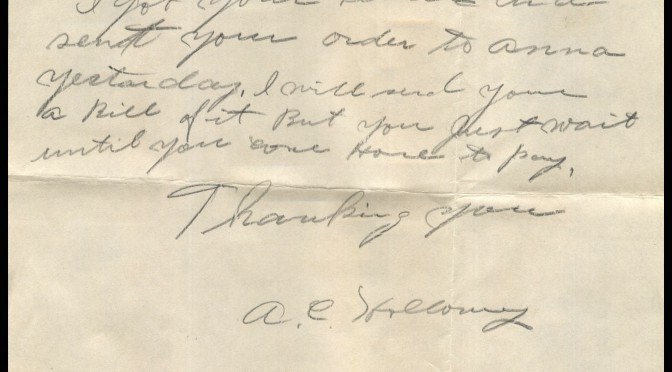 I got your
sent your order to anna
yesterday. I will send your
a Bill of it But you Just wait
until you come Home to pay.
Thanking you
A. C. Holloway